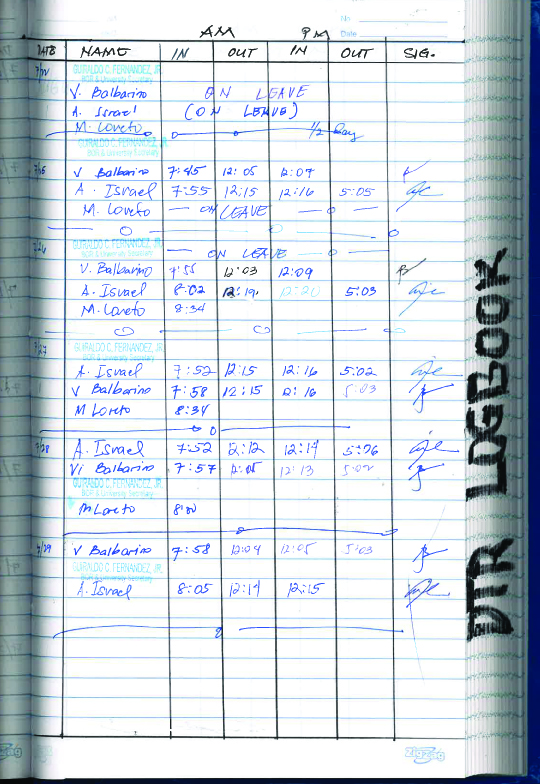 No
Date
AM PM
DATE NAME IN OUT IN OUT SIG.
GUIRALDO C. FERNANDEZ, JR.
BOR & University Secretary
V. Balbarino ON LEAVE
A. Israel (ON LEAVE)
M. Loreto 1/2 Day
GUIRALDO C. FERNANDEZ, JR.
BOR & University Secretary
V Balbarino 7:45 12:05 12:07
A. Israel 7:55 12:15 12:16 5:05
M. Loreto ON LEAVE
GUIRALDO C. FERNANDEZ, JR. ON LEAVE
BOR & University Secretary
V. Balbarino 7:55 12:03 12:09
A. Israel 8:02 12:19 12:20 5:03
M. Loreto 8:34
7/27
GUIRALDO C. FERNANDEZ, JR.
BOR & University Secretary
A. Israel 7:52 12:15 12:16 5:02
V Balbarino 7:58 12:15 12:16 5:03
M Loreto 8:34
7/28 A. Israel 7:52 12:12 12:14 5:06
Vi Balbarino 7:57 12:05 12:13 5:02
GUIRALDO C. FERNANDEZ, JR.
BOR & University Secretary
M Loreto 8:00
7/29 V Balbarino 7:58 12:04 12:05 5:03
GUIRALDO C. FERNANDEZ, JR.
BOR & University Secretary
A. Israel 8:05 12:14 12:15
ZigZag
DTR LOGBOOK